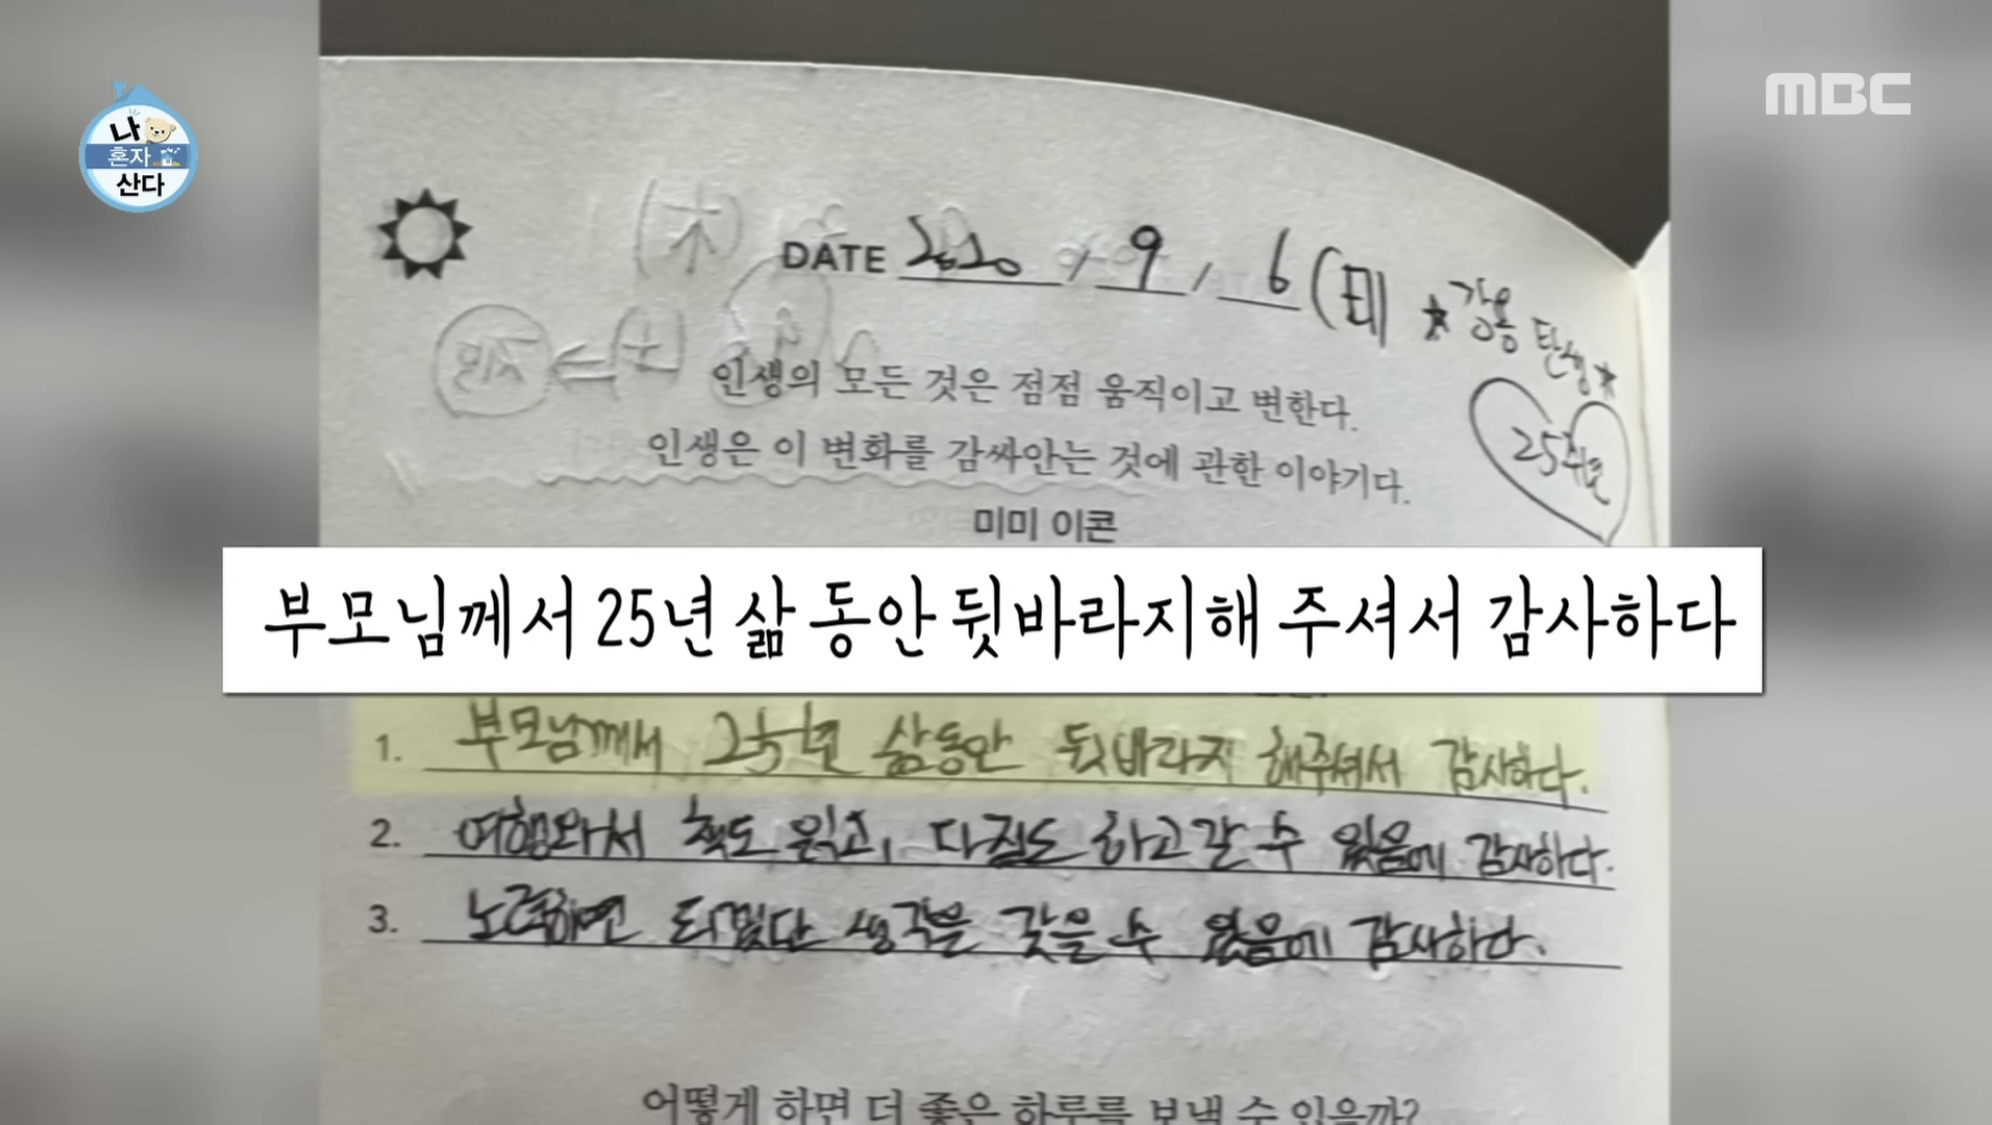 나
혼자
산다
MBC
(木)
DATE 2020 / 9 / 6 (日)
★강용 탄생★
25주년
인생의 모든 것은 점점 움직이고 변한다.
인생은 이 변화를 감싸안는 것에 관한 이야기다.
미미 이콘
부모님께서 25년 삶 동안 뒷바라지해 주셔서 감사하다
1. 부모님께서 25년 삶동안 뒷바라지 해주셔서 감사하다.
2. 여행와서 책도 읽고, 다짐도 하고갈 수 있음에 감사하다.
3. 노력하면 된다는 생각을 갖을 수 있음에 감사하다.
어떻게 하면 더 좋은 하루를 보낼 수 있을까?